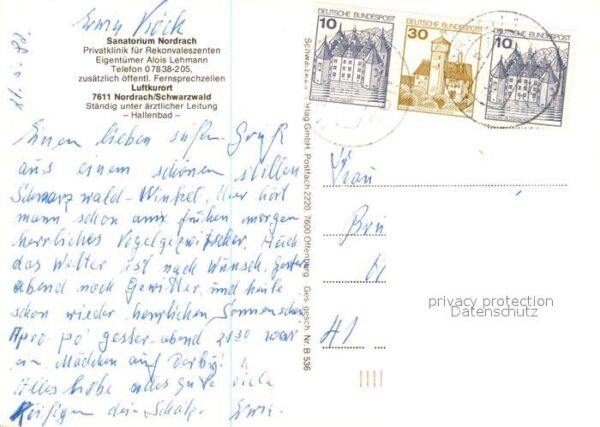 Sanatorium Nordrach
Privatklinik für Rekonvaleszenten
Eigentümer Alois Lehmann
Telefon 07838-205,
zusätzlich öffentl. Fernsprechzellen
Luftkurort
7611 Nordrach/Schwarzwald
Ständig unter ärztlicher Leitung
– Hallenbad –
Einen lieben süßen Gruß
aus einem schönen stillen
Schwarzwald-Winkel. Hier hört
man schon am frühen morgen
herrliches Vogelgezwitscher. Auch
das Wetter ist nach Wunsch, gestern
abend noch Gewitter, und heute
schon wieder herrlichen Sonnenschein
Apropo gester-abend 21³⁰ war
ein Mädchen auf
Alles liebe alles gute viele
dein Schatz.
DEUTSCHE BUNDESPOST
10
DEUTSCHE BUNDESPOST
30
DEUTSCHE BUNDESPOST
10
Postfach 2220, 7600 Offenburg Ges. gesch. Nr. B 536
Frau
41
privacy protection
Datenschutz